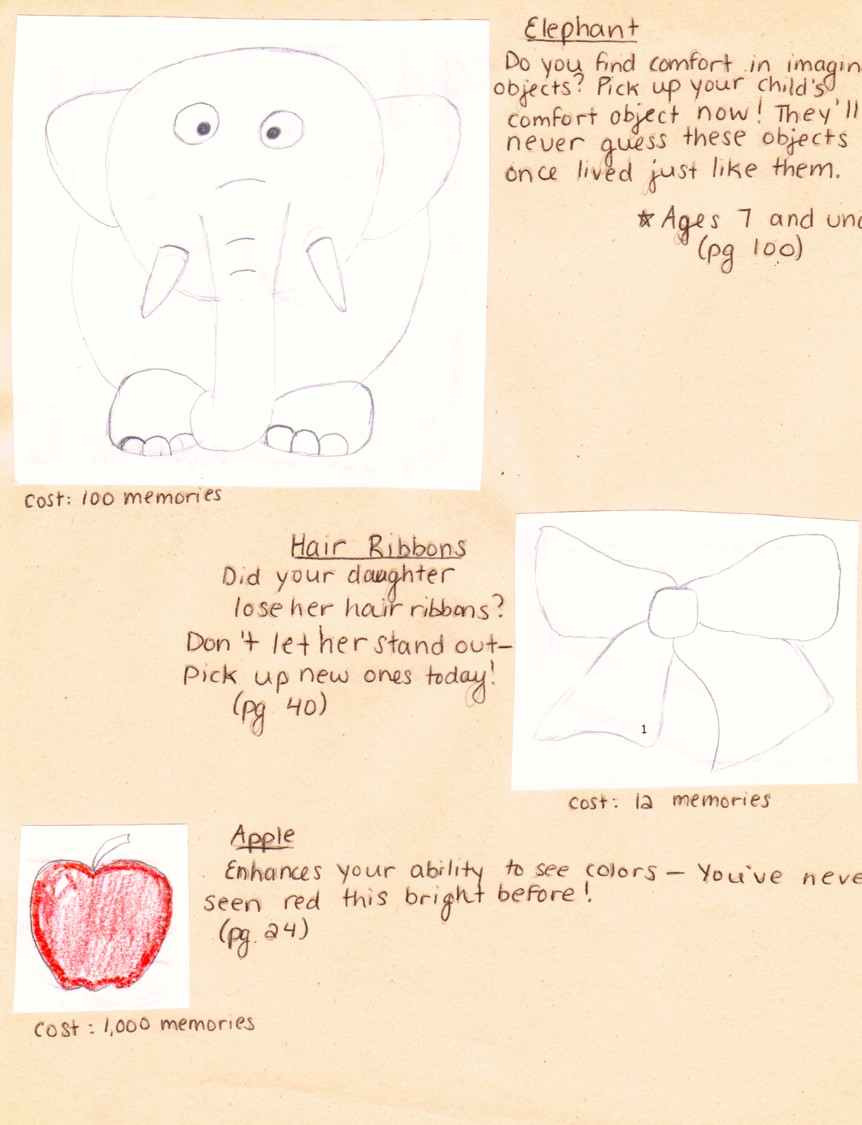 Elephant
Do you find comfort in imagin
objects? Pick up your child's
comfort object now! They'll
never guess these objects
once lived just like them.
* Ages 7 and und
(pg 100)
cost: 100 memories
Hair Ribbons
Did your daughter
lose her hair ribbons?
Don't let her stand out-
Pick up new ones today!
(pg. 40)
1
cost: 12 memories
Apple
Enhances your ability to see colors - You've neve
seen red this bright before!
(pg. 24)
cost: 1,000 memories